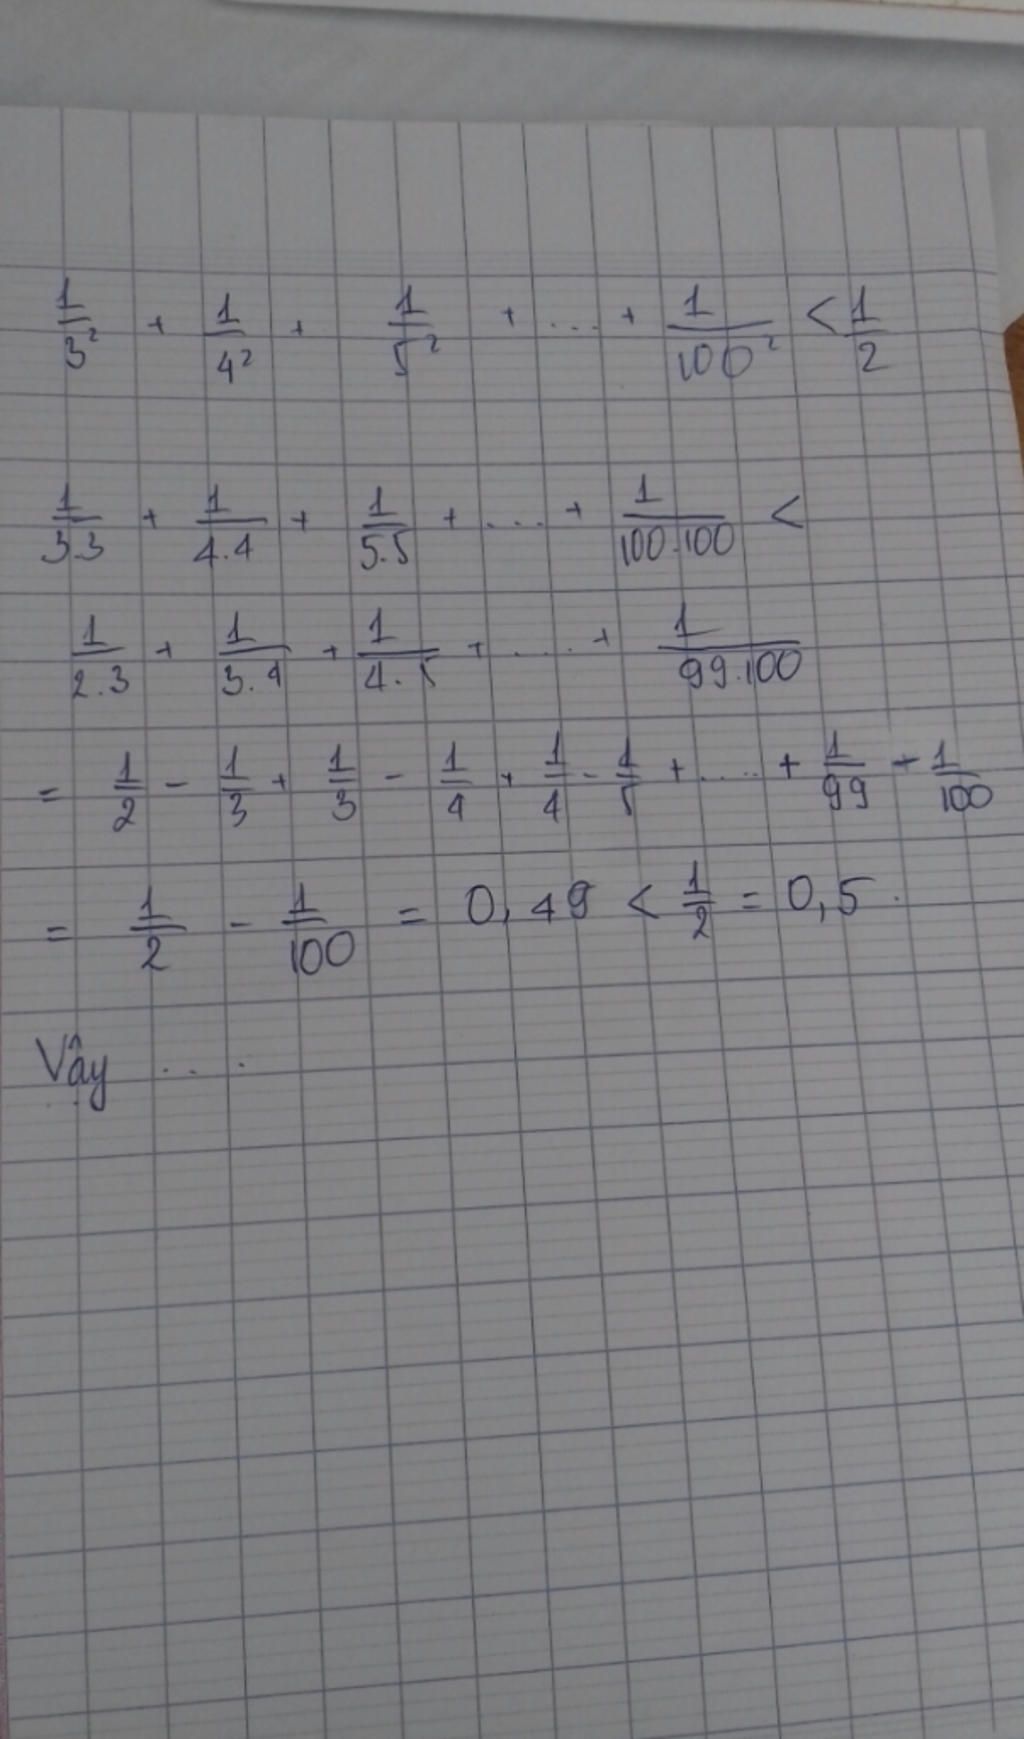 1/3² + 1/4² + 1/5² + ... + 1/100² < 1/2
1/3.3 + 1/4.4 + 1/5.5 + ... + 1/100.100 <
1/2.3 + 1/3.4 + 1/4.5 + .... + 1/99.100
= 1/2 - 1/3 + 1/3 - 1/4 + 1/4 - 1/5 + .... + 1/99 + 1/100
= 1/2 - 1/100 = 0,49 < 1/2 = 0,5.
Vậy ....